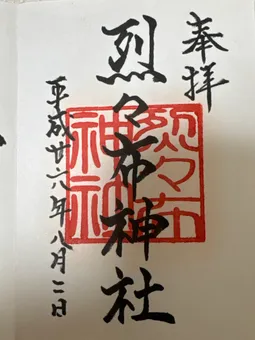 奉拝
烈々布神社
烈々布神社
平成廿八年八月二日